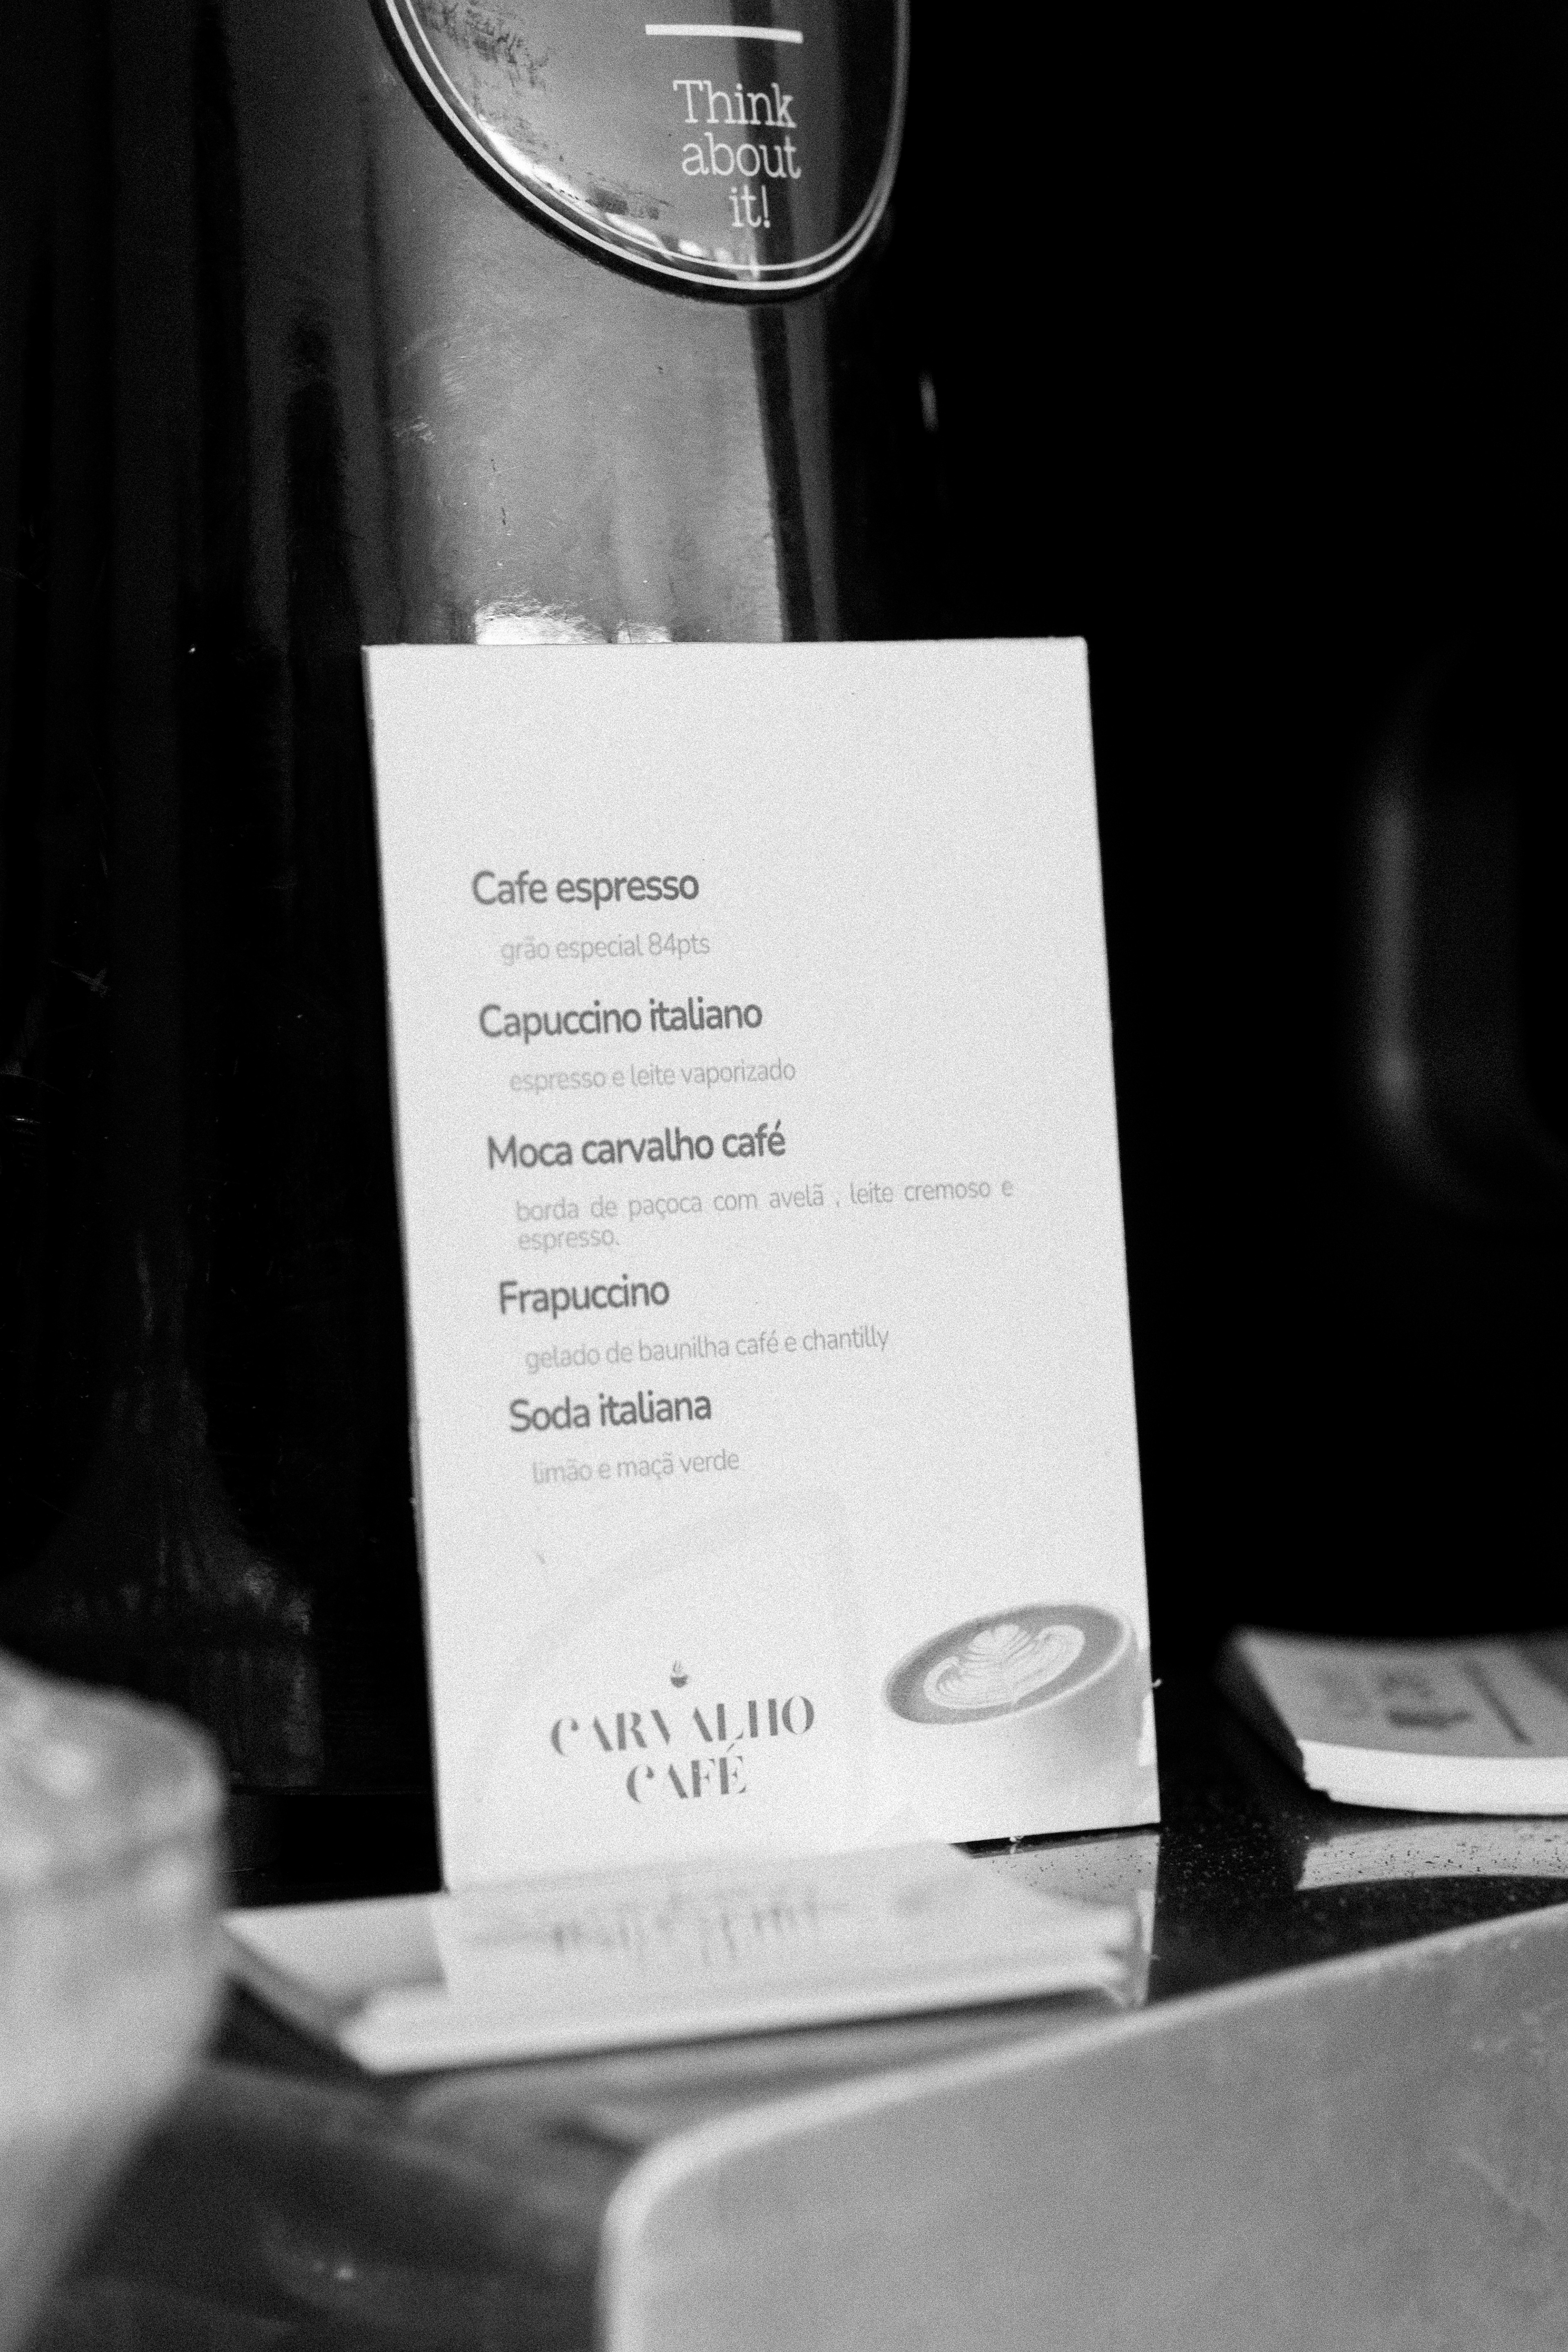 Think
about
it!
Cafe espresso
grão especial 84pts
Capuccino italiano
espresso e leite vaporizado
Moca carvalho café
borda de paçoca com avelã , leite cremoso e
espresso.
Frapuccino
gelado de baunilha café e chantilly
Soda italiana
limão e maçã verde
CARVALHO
CAFÉ